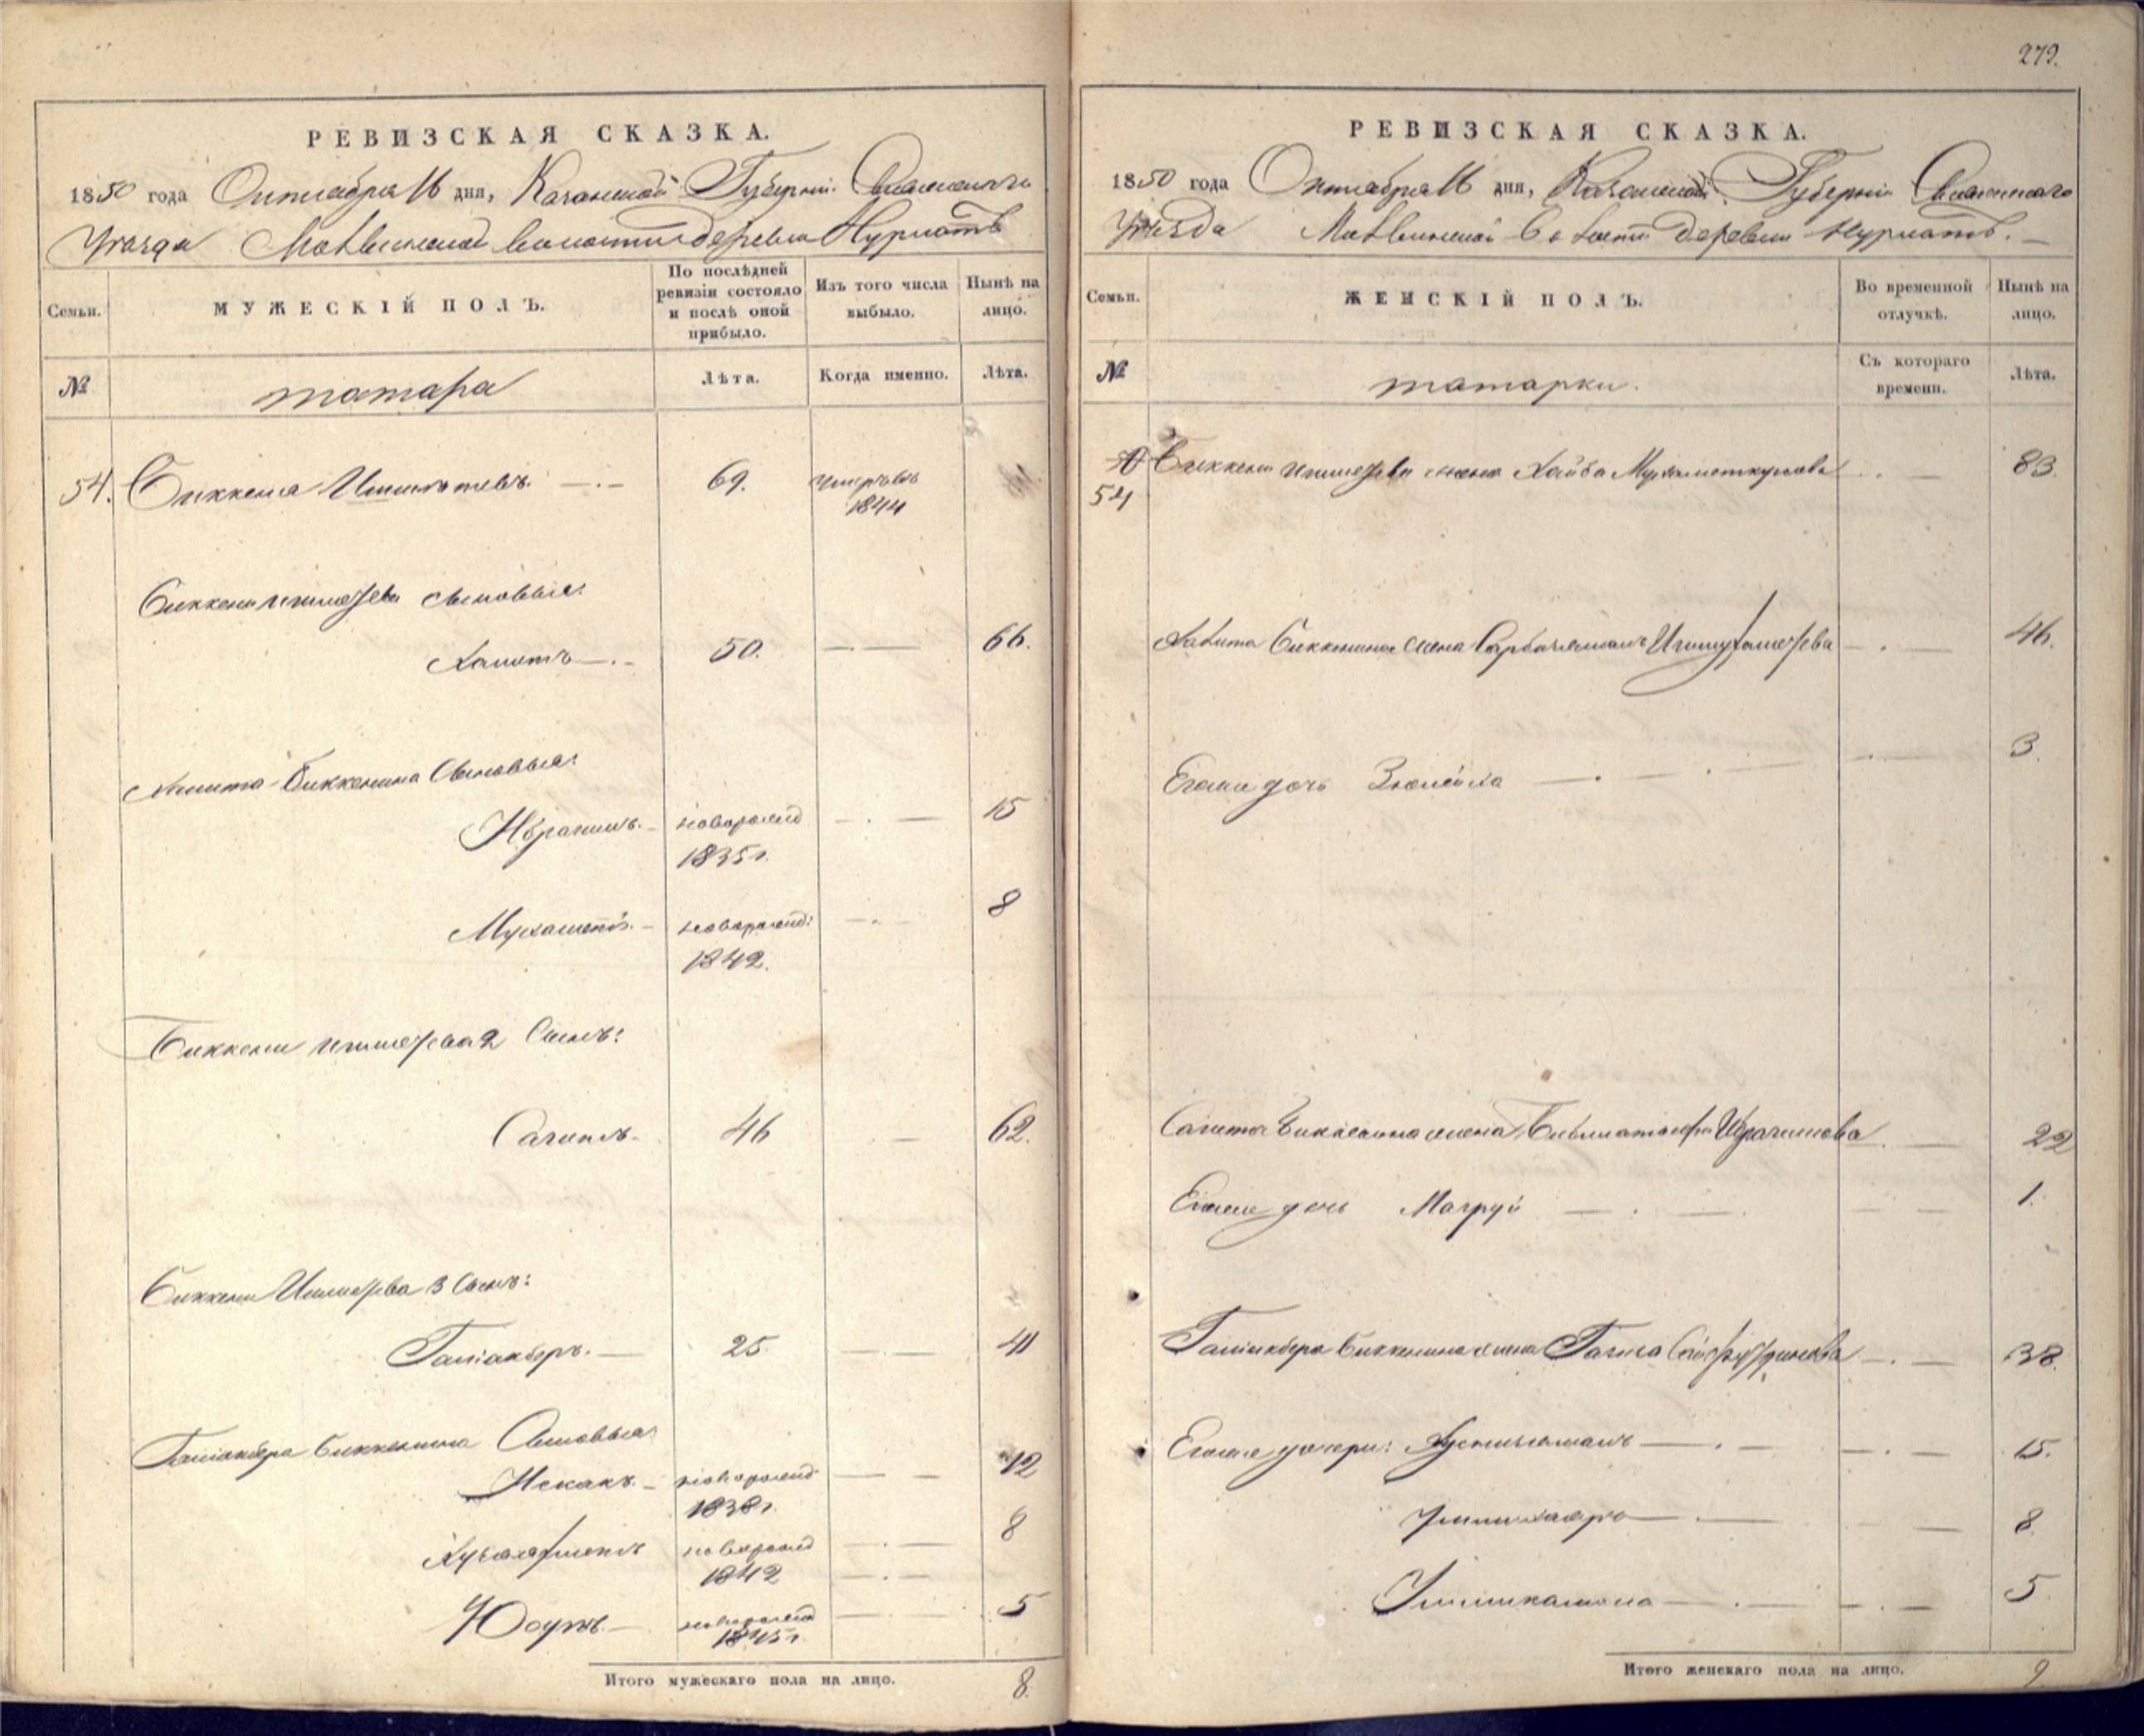 РЕВИЗСКАЯ СКАЗКА.
1850 года Октября 16 дня, Казанской Губернии Свіяжскаго
Уезда волости деревни Нурлатъ
Семьи.
МУЖЕСКІЙ ПОЛЪ.
По послѣдней ревизіи состояло и послѣ оной прибыло.
Изъ того числа выбыло.
Нынѣ на лицо.
№
татара
Лѣта.
Когда именно.
Лѣта.
54. Биккеня 69. умеръ
1844
Биккени Ишмаева сыновья:
Хамитъ 50. 66.
Хамита Биккенина Сыновья:
Ибрагимъ новорожд 15
1835 г.
Мухаметъ новорожд: 8
1842.
Биккени Ишмаева 2 Сынъ:
Сагитъ 46 62.
Биккени Ишмаева 3 Сынъ:
Галіакберъ. 25 41
Галіакбера Биккенина Сыновья
Исхакъ новорожд 12
1838 г.
новорожд 8
1842
Юсупъ новорожд 5
1845 г.
Итого мужескаго пола на лицо. 8.
279.
РЕВИЗСКАЯ СКАЗКА.
1850 года Октября 16 дня, Казанской Губерніи Свіяжскаго
Уезда Волости деревни Нурлатъ.
Семьи.
ЖЕНСКІЙ ПОЛЪ.
Во временной отлучкѣ.
Нынѣ на лицо.
№
татарки.
Съ котораго времени.
Лѣта.
54
Биккени Ишмаева жена 83.
Хамита Биккенина жена 46.
Егоже дочь Зюлейха 3.
Сагита Биккенина жена Ибрагимова 22
Егоже дочь Магруй 1.
Галіакбера Биккенина жена 38.
Егоже дочери: 15.
8.
5
Итого женскаго пола на лицо. 9